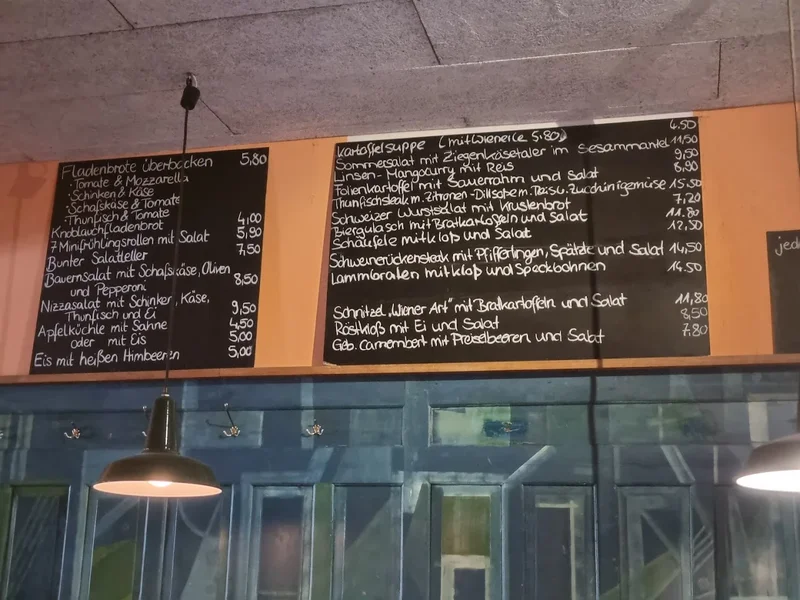 Fladenbrote überbacken 5,80
· Tomate & Mozzarella
· Schinken & Käse
· Schafskäse & Tomate
· Thunfisch & Tomate
Knoblauchfladenbrot 4,00
7 Minifrühlingsrollen mit Salat 5,90
Bunter Salatteller 7,50
Bauernsalat mit Schafskäse, Oliven
und Pepperoni 8,50
Nizzasalat mit Schinken, Käse,
Thunfisch und Ei 9,50
Apfelküchle mit Sahne 4,50
oder mit Eis 5,00
Eis mit heißen Himbeeren 5,00
Kartoffelsuppe (mit Wienerle 5.80) 4.50
Sommersalat mit Ziegenkäsetaler im Sesammantel 11,50
Linsen-Mangocurry mit Reis 9,50
Folienkartoffel mit Sauerrahm und Salat 8,90
Thunfischsteak m. Zitronen-Dillsoße m. Reis u. Zucchinigemüse 15,50
Schweizer Wurstsalat mit Krustenbrot 7,20
Biergulasch mit Bratkartoffeln und Salat 11.80
Schäufele mit Kloß und Salat 12,50
Schweinerückensteak mit Pfifferlingen, Spätzle und Salat 14,50
Lammbraten mit Kloß und Speckbohnen 14.50
Schnitzel „Wiener Art" mit Bratkartoffeln und Salat 11,80
Röstkloß mit Ei und Salat 8,50
Geb. Camembert mit Preiselbeeren und Salat 7.80